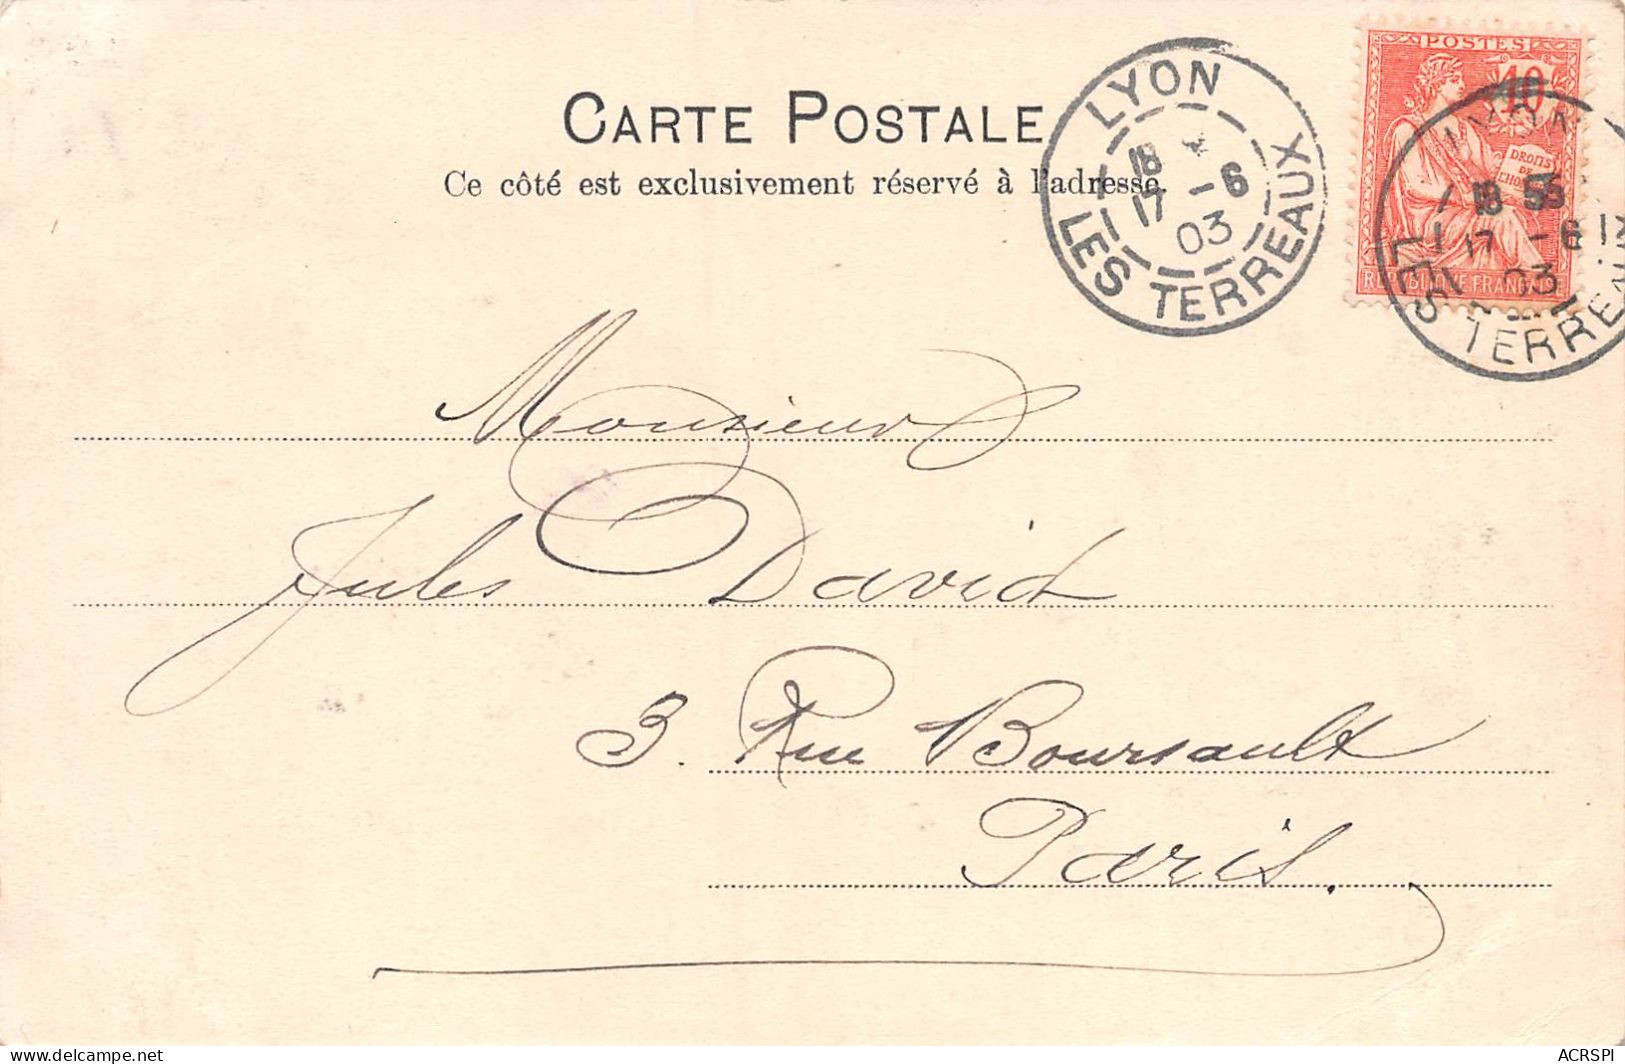 CARTE POSTALE
Ce côté est exclusivement réservé à l'adresse.
LYON
18 *
17 -6
03
LES TERREAUX
POSTES
10
DROITS
DE
L'HOMME
REPUBLIQUE FRANÇAISE
LYON
18 55
17 -6
03
LES TERREAUX
Monsieur
Jules David
3. Rue Boursault
Paris.
ACRSPI